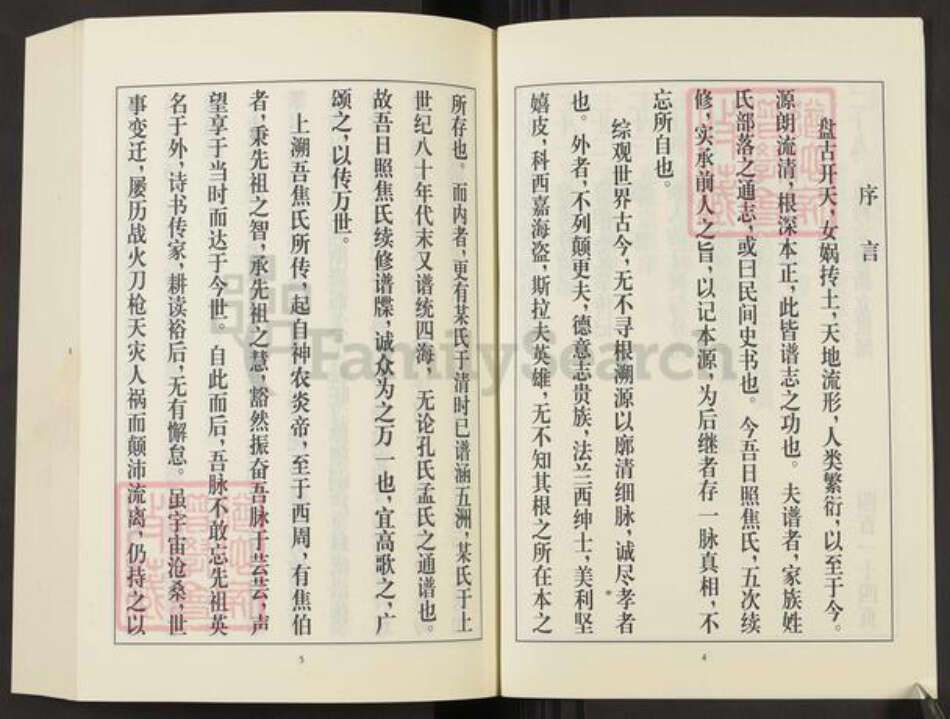 序言
盘古开天，女娲抟土，天地流形，人类繁衍，以至于今。
源朗流清，根深本正，此皆谱志之功也。夫谱者，家族姓
氏部落之通志，或曰民间史书也。今吾日照焦氏，五次续
修，实承前人之旨，以记本源，为后继者存一脉真相，不
忘所自也。
综观世界古今，无不寻根溯源以廓清细脉，诚尽孝者
也。外者，不列颠更夫，德意志贵族，法兰西绅士，美利坚
嬉皮，科西嘉海盗，斯拉夫英雄，无不知其根之所在本之
4
所存也。而内者，更有某氏于清时已谱涵五洲，某氏于上
世纪八十年代末又谱统四海，无论孔氏孟氏之通谱也。
故吾日照焦氏续修谱牒，诚众为之万一也，宜高歌之，广
颂之，以传万世。
上溯吾焦氏所传，起自神农炎帝，至于西周，有焦伯
者，秉先祖之智，承先祖之慧，豁然振奋吾脉于芸芸，声
望享于当时而达于今世。自此而后，吾脉不敢忘先祖英
名于外，诗书传家，耕读裕后，无有懈怠。虽宇宙沧桑，世
事变迁，屡历战火刀枪天灾人祸而颠沛流离，仍持之以
5
FamilySearch